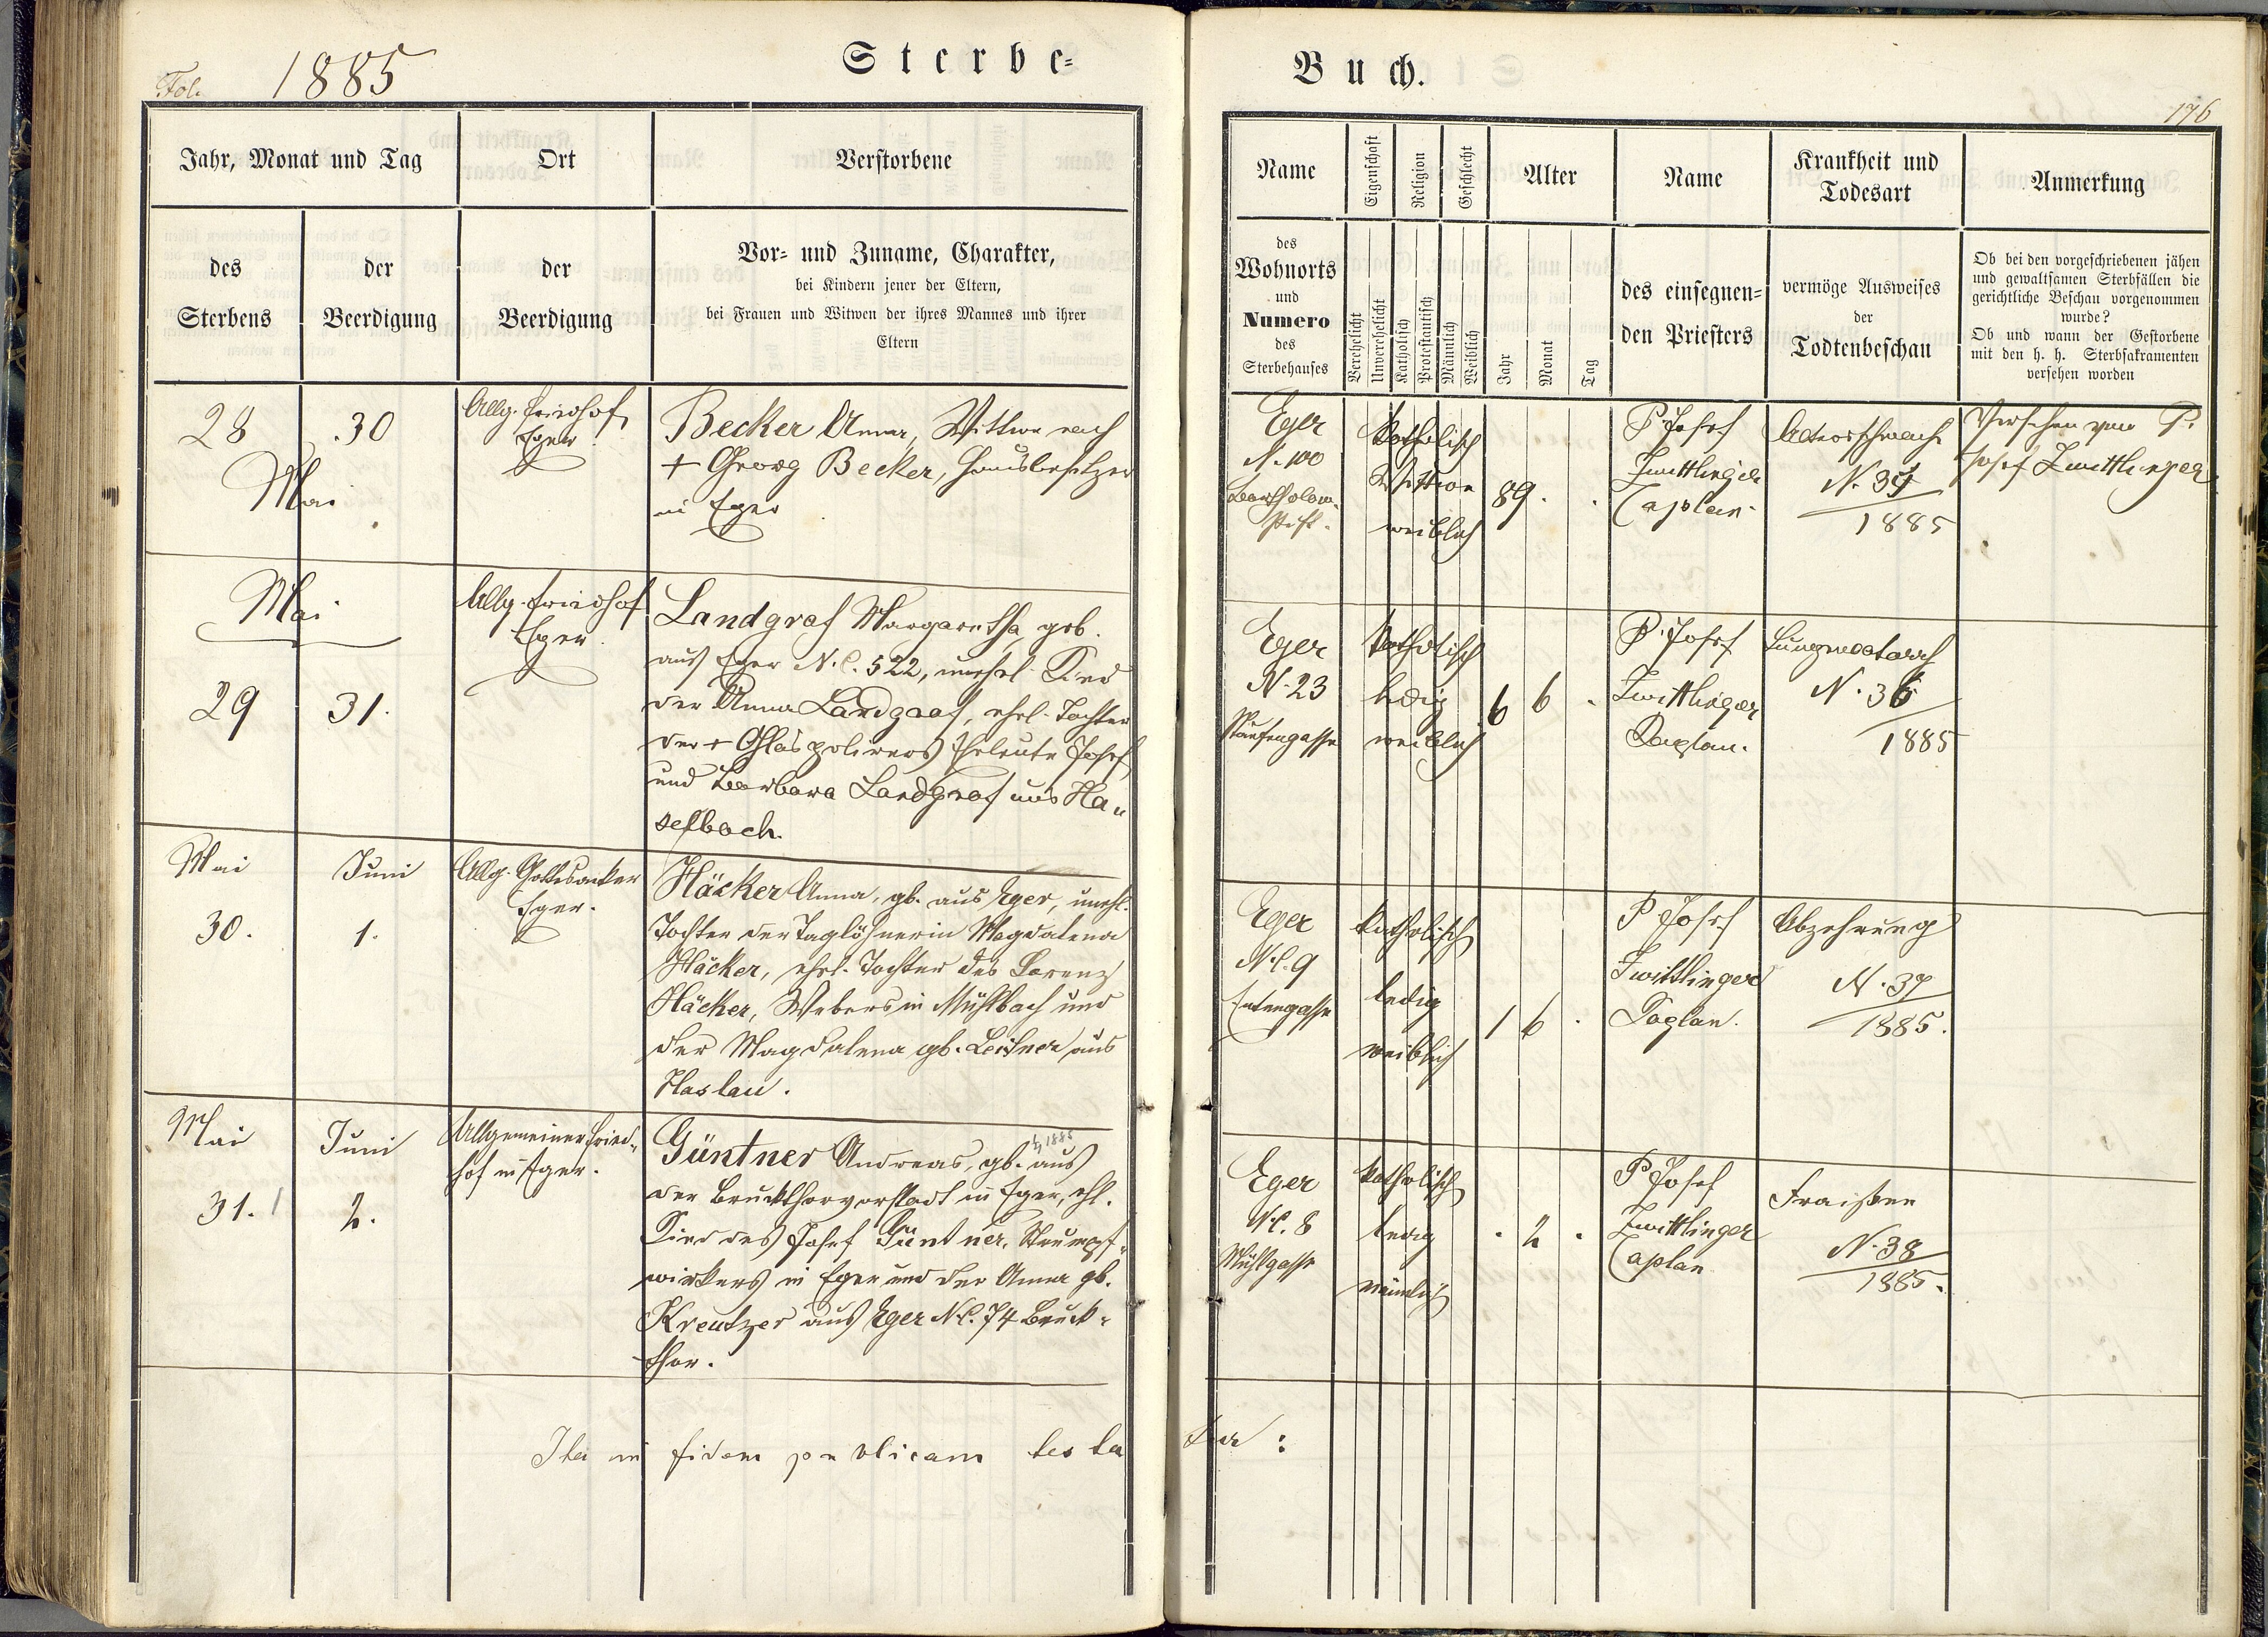 Fol. 1885 Sterbe=
Jahr, Monat und Tag
Ort
Verstorbene
des
Sterbens
der
Beerdigung
der
Beerdigung
Vor= und Zuname, Charakter,
bei Kindern jener der Eltern,
bei Frauen und Witwen der ihres Mannes und ihrer
Eltern
28
Mai
30
Allg. Friedhof
Eger
Becker Anna, Wittwe nach
+ Georg Becker, Hausbesitzer
in Eger
Mai
29
31.
Allg. Friedhof
Eger.
Landgraf Margaretha, geb.
aus Eger N.C. 522, unehel. Kind
der Anna Landgraf, ehel. Tochter
der + Glaspolierers Eheleute Josef
und Barbara Landgraf aus Hau
selbach.
Mai
30.
Juni
1.
Allg. Gottesacker
Eger.
Häcker Anna, gb. aus Eger, unehl.
Tochter der Taglöhnerin Magdalena
Häcker, ehel. Tochter des Lorenz
Häcker, Webers in Mühlbach und
der Magdalena gb. Leitner aus
Haslau.
Mai
31.
Juni
2.
Allgemeiner Fried-
hof in Eger.
1885
Güntner Andreas, gb. aus
der Bruckthorvorstadt in Eger, ehl.
Kind des Josef Güntner, Strumpf-
wirkers in Eger und der Anna gb.
Kreutzer aus Eger N.C. 74 Bruck-
thor.
Ita in fidem publicam testa
Buch.
176
Name
Eigenschaft
Religion
Geschlecht
Alter
Name
Krankheit und
Todesart
Anmerkung
des
Wohnorts
und
Numero
des
Sterbehauses
Verehelicht
Unverehelicht
Katholisch
Protestantisch
Männlich
Weiblich
Jahr
Monat
Tag
des einsegnen=
den Priesters
vermöge Ausweises
der
Todtenbeschau
Ob bei den vorgeschriebenen jähen
und gewaltsamen Sterbfällen die
gerichtliche Beschau vorgenommen
wurde?
Ob und wann der Gestorbene
mit den h. h. Sterbsakramenten
versehen worden
Eger
N. 100
Bartholom.
stift.
katholisch
Wittwe
weiblich
89 . .
P. Josef
Zwittlinger
Caplan.
Altersschwäche
N. 35
1885
Versehen von P.
Josef Zwittlinger
Eger
N. 23
katholisch
ledig
weiblich
6 6 .
P. Josef
Zwittlinger
Caplan.
Lungencatarrh
N. 36
1885
Eger
N.C. 9
katholisch
ledig
weiblich
1 6 .
P. Josef
Zwittlinger
Caplan.
Abzehrung
N. 37
1885.
Eger
N.C. 8
Mühlgasse
katholisch
ledig
männlich
. 2 .
P. Josef
Zwittlinger
Caplan
Fraißen
N. 38
1885.
tur :